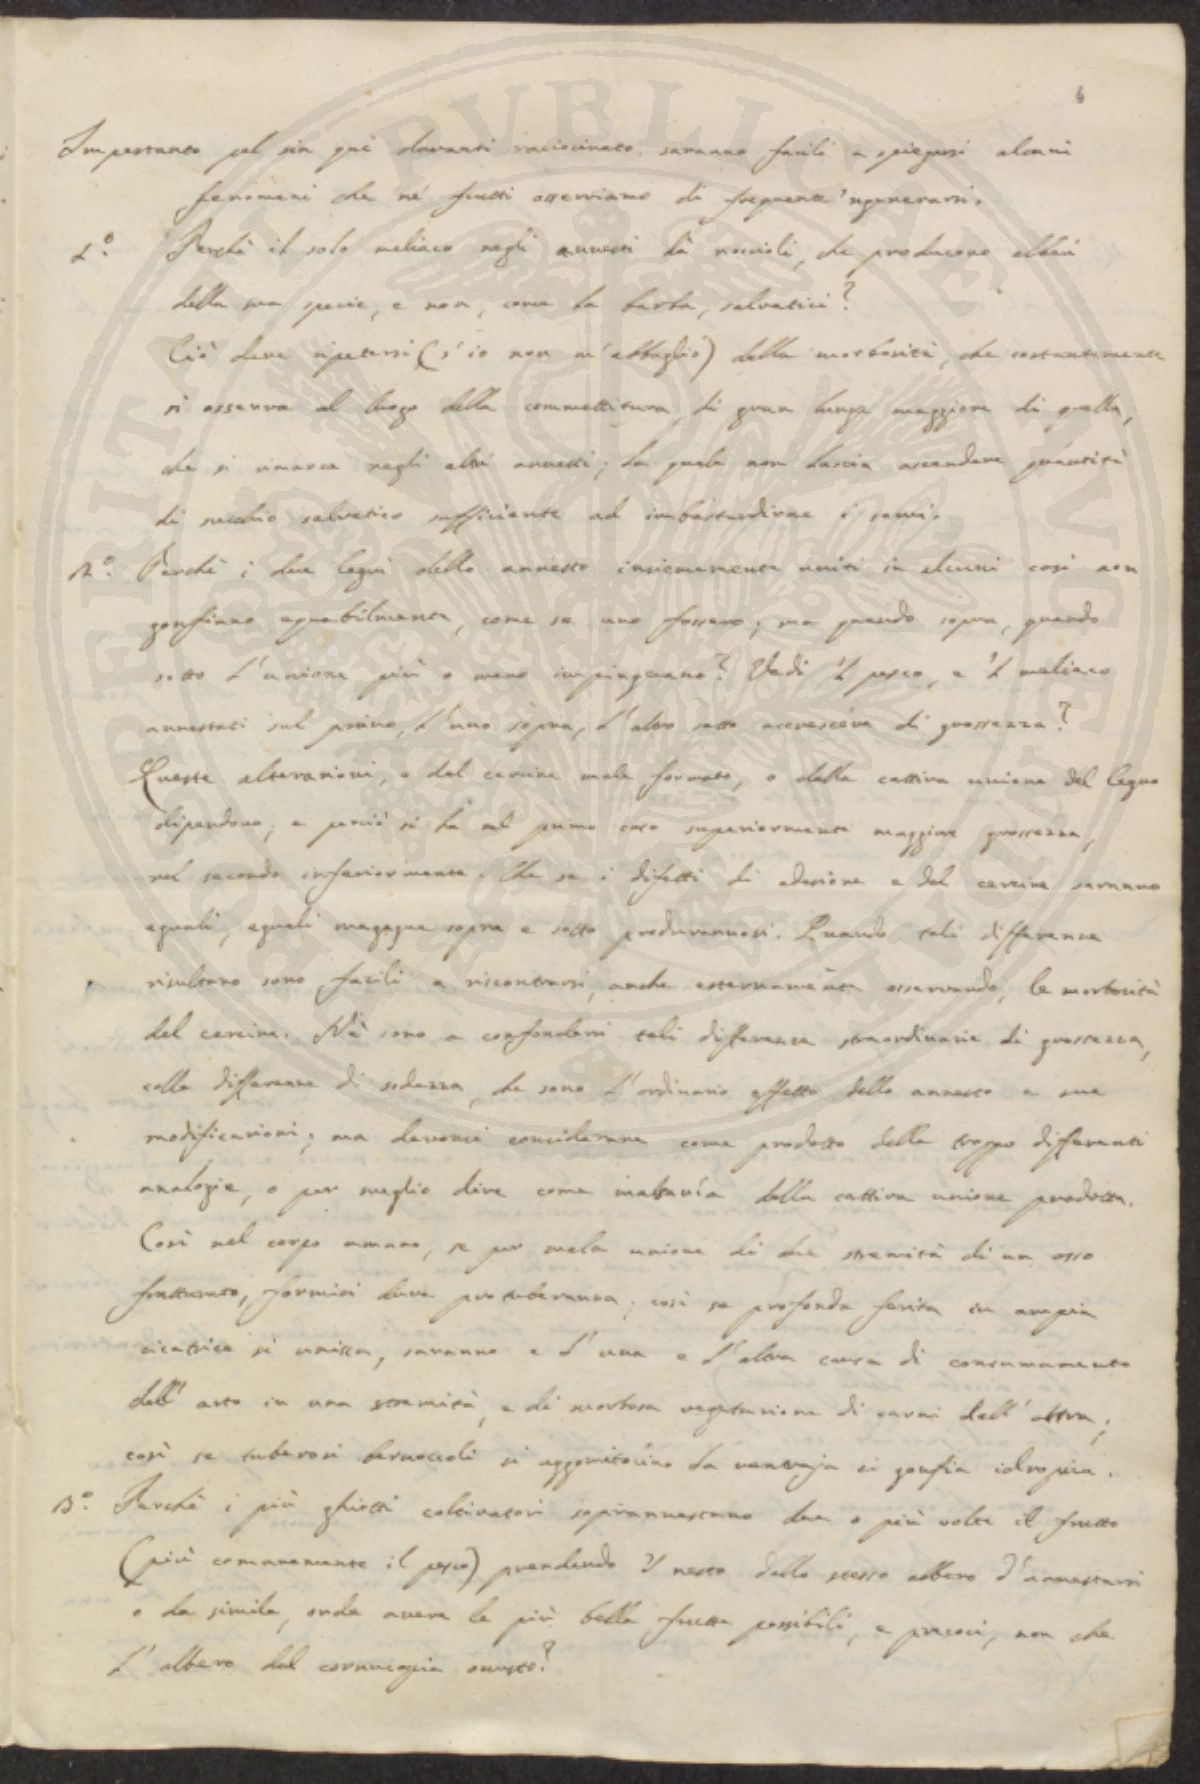 6
Impertanto pel sin quì davanti raciocinato saranno facili a spiegarsi alcuni
fenomeni che ne' frutti osserviamo di frequente ingenerarsi.
1.° Perchè il solo meliaco negli annesti dà noccioli, che producono alberi
della sua specie, e non, come la barba, salvatici?
Ciò deve ripetersi (s'io non m'abbaglio) della morbosità, che costantemente
si osserva al luogo della commettitura, di gran lunga maggiore di quella,
che si rimarca negli altri annesti; la quale non lascia ascendere quantità
di succhio salvatico sufficiente ad imbastardirne i semi.
2.° Perchè i due legni dello annesto insiememente uniti in alcuni casi non
gonfiano equabilmente, come se uno fossero; ma quando sopra, quando
sotto l'unione più o meno impinguano? Vedi 'l pesco, e 'l meliaco
annestati sul prino, l'uno sopra, l'altro sotto accrescere di grossezza?
Queste alterazioni, o del cercine male formato, o della cattiva unione del legno
dipendono; e perciò si ha nel primo caso superiormente maggiore grossezza,
nel secondo inferiormente. Che se i difetti di adesione e del cercine saranno
eguali, eguali magagne sopra e sotto produrrannosi. Quando tali differenze
risultano sono facili a riscontrarsi, anche esternamente osservando, le morbosità
del cercine. Nè sono a confondersi tali differenze straordinarie di grossezza,
colle differenze di sodezza, che sono l'ordinario effetto dello annesto e sue
modificazioni; ma devonsi considerare come prodotto delle troppo differenti
analogie, o per meglio dire come malattia della cattiva unione prodotta.
Così nel corpo umano, se per mala unione di due stremità di un osso
fratturato, formisi dura protuberanza; così se profonda ferita in ampia
cicatrice si unisca, saranno e l'una e l'altra causa di consumamento
dell'arto in una stremità, e di morbosa vegetazione di carni dell'altra;
così se tuberosi bernoccoli si aggomitolino la ventraja si gonfia idropica.
3.° Perchè i più ghiotti coltivatori soprannestano due o più volte il frutto
(più comunemente il pesco) prendendo 'l nesto dallo stesso albero d'annestarsi
o da simile, onde avere le più belle frutta possibili, e precoci, non che
l'albero del cornucopia onusto?